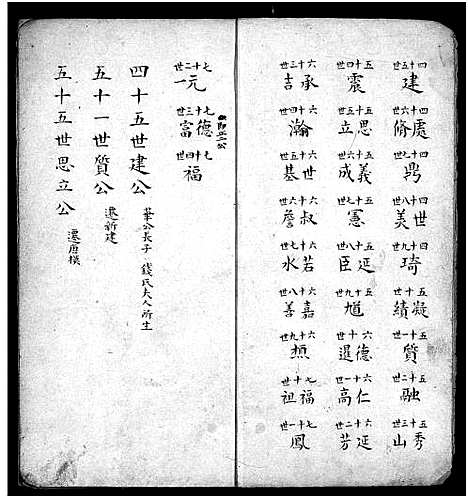 四十五世
建
四十六世
處脩
四十七世
四十八世
世美
四十九世
琦
五十世
凝績
五十一世
質
五十二世
融
五十三世
秀山
五十四世
震
五十五世
思立
五十六世
義成
五十七世
憲
五十八世
延臣
五十九世
馗
六十世
德
六十一世
仁高
六十二世
延芳
六十三世
承吉
六十四世
瀚
六十五世
世基
六十六世
叔詹
六十七世
若水
六十八世
嘉善
六十九世
七十世
福祖
七十一世
鳳
七十二世
元一
七十三世
德富
七十四世
福
四十五世建公
華公長子 錢氏夫人所生
五十一世質公
遷新建
五十五世思立公
遷唐模